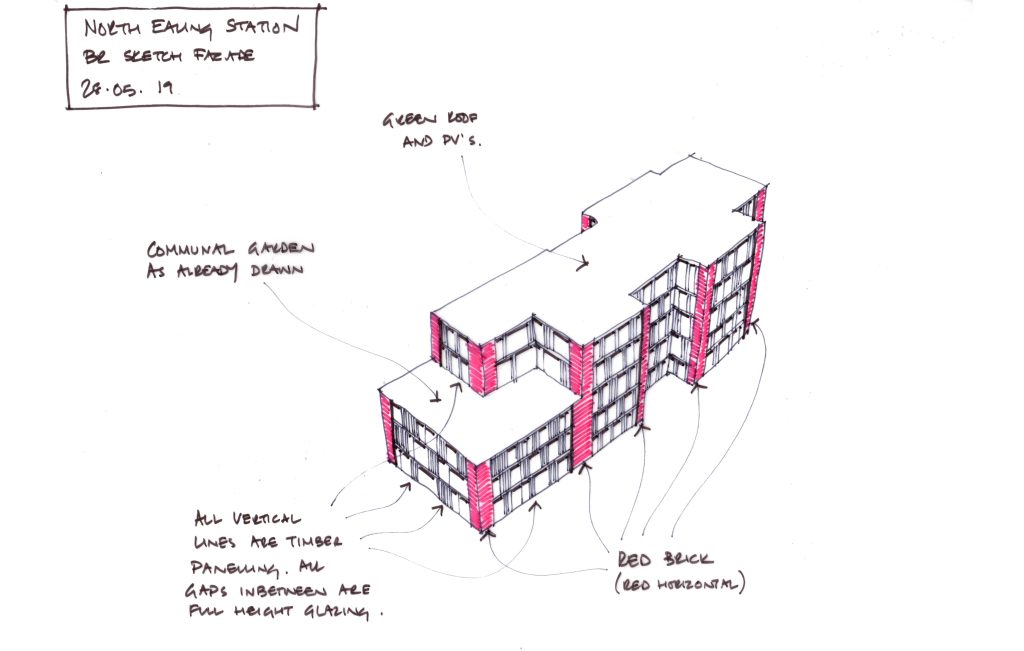 NORTH EALING STATION
BR SKETCH FAZADE
28.05.19
GREEN ROOF
AND PV'S.
COMMUNAL GARDEN
AS ALREADY DRAWN
ALL VERTICAL
LINES ARE TIMBER
PANELLING. ALL
GAPS INBETWEEN ARE
FULL HEIGHT GLAZING.
RED BRICK
(RED HORIZONTAL)